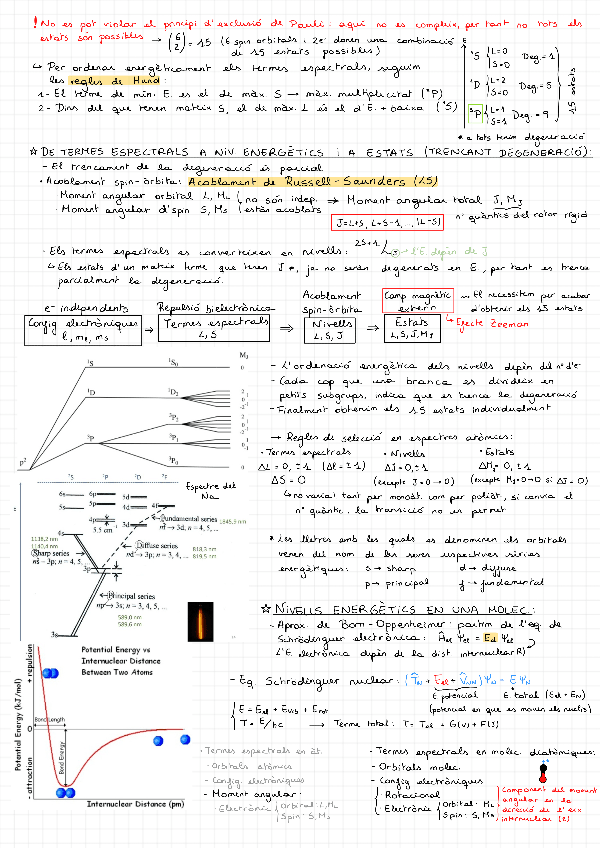 ! No es pot violar el principi d'exclusió de Pauli: aquí no es compleix, per tant no tots els
estats són possibles → (6 2) = 15 (6 spin orbitals i 2e⁻ donen una combinació
de 15 estats possibles)
E
¹S { L=0 S=0 Deg. = 1
¹D { L=2 S=0 Deg = 5
³P { L=1 S=1 Deg. = 9
15 estats
* a tots tenim degeneració
↳ Per ordenar energèticament els termes espectrals, seguim
les regles de Hund:
1- El terme de mín. E. és el de màx. S → màx. multiplicitat (³P)
2- Dins del que tenen mateix S, el de màx. L és el d'E. + baixa (¹S)
☆ DE TERMES ESPECTRALS A NIV. ENERGÈTICS I A ESTATS (TRENCANT DEGENERACIÓ):
- El trencament de la degeneració és parcial
· Acoblament spin-òrbita: Acoblament de Russell-Saunders (LS)
Moment angular orbital L, ML { no són indep. → Moment angular total J, MJ
· Moment angular d'spin S, MS { estan acoblats
J = L+S, L+S-1, ..., |L-S|
nº quàntics del rotor rígid
· Els termes espectrals es converteixen en nivells: 2S+1 L J → l'E depèn de J
↳ Els estats d'un mateix terme que tenen J ≠, ja no seran degenerats en E, per tant es trenca
parcialment la degeneració.
e⁻ independents
Config electròniques
l, ml, ms
→
Repulsió bielectrònica
Termes espectrals
L, S
⇒
Acoblament
spin-òrbita
Nivells
L, S, J
⇒
Camp magnètic
extern
→ El necessitem per acabar
d'obtenir els 15 estats
Estats
L, S, J, MJ
↳ Efecte Zeeman
MJ
p²
¹S
¹S₀
0
¹D
¹D₂
³P
³P₂
³P₁
³P₀
0
- L'ordenació energètica dels nivells depèn del nº d'e⁻
- Cada cop que una branca es divideix en
petits subgrups, indica que es trenca la degeneració
- Finalment obtenim els 15 estats individualment
→ Regles de selecció en espectres atòmics:
· Termes espectrals
ΔL = 0, ±1 (Δl = ±1)
ΔS = 0
· Nivells
ΔJ = 0, ±1
(excepte J=0→0)
· Estats
ΔMJ = 0, ±1
(excepte MJ=0→0 si ΔJ=0)
↳ no variat tant per monoat. com per poliat., si canvia el
nº quàntic, la transició no és permet
* Les lletres amb les quals es denominen els orbitals
venen del nom de les seves respectives sèries
energètiques: s → sharp d → diffuse
p → principal f → fundamental
Espectre del
Na
6s
5s
4s
3s
6p
5p
4p
3p
5d
4d
3d
5f
4f
5.5 cm⁻¹
Fundamental series
nf → 3d; n = 4, 5, ...
1845,9 nm
1138,2 nm
1140,4 nm
Sharp series
ns → 3p; n = 4, 5, ...
Diffuse series
nd → 3p; n = 3, 4, ...
818,3 nm
819,5 nm
Principal series
np → 3s; n = 3, 4, 5, ...
589,0 nm
589,6 nm
☆ NIVELLS ENERGÈTICS EN UNA MOLEC.:
- Aprox. de Born-Oppenheimer: partim de l'eq. de
Schrödinger electrònica: Ĥel Ψel = Eel Ψel
(L'E. electrònica depèn de la dist. internuclear R)
- Eq. Schrödinger nuclear: (T̂N + Eel + V̂NN) ΨN = E ΨN
E potencial
(potencial en que es mouen els nuclis)
E total (Eel + EN)
{ E = Eel + Evib + Erot
T = E/hc → Terme total: T = Tel + G(v) + F(J)
Potential Energy vs
Internuclear Distance
Between Two Atoms
Potential Energy (kJ/mol)
+ repulsion
0
- attraction
Bond Length
Bond Energy
Internuclear Distance (pm)
- Termes espectrals en àt.
- Orbitals atòmics
- Config. electròniques
- Moment angular:
- Electrònic { Orbital: L, ML
Spin: S, MS
- Termes espectrals en molec. diatòmiques:
- Orbitals molec.
- Config electròniques
· Rotacional
· Electrònic { Orbital: ML
Spin: S, MS
Component del moment
angular en la
direcció de l'eix
internuclear (z)